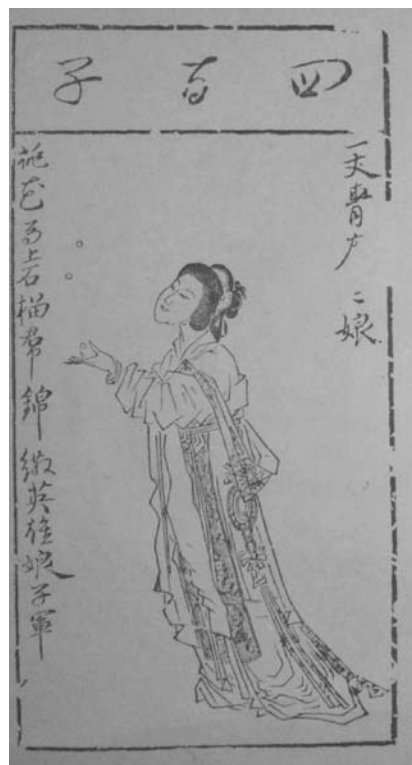 四百子
一丈青户二娘
桃花马上石榴帬錦繖英雄娘子軍